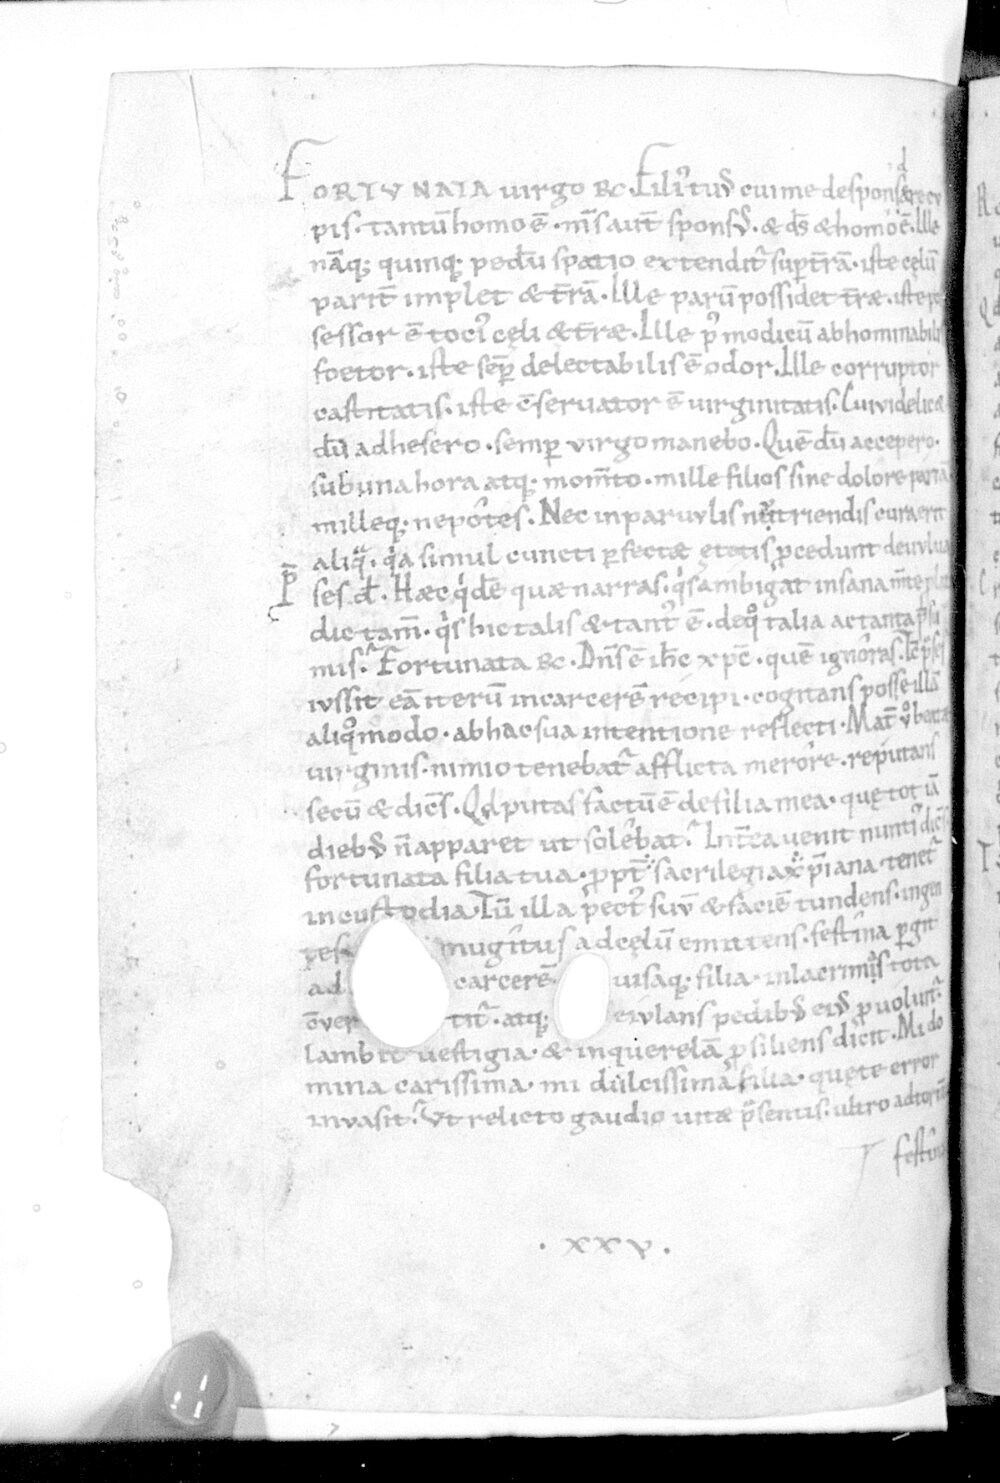 FORTUNATA uirgo RC. Fili᷒ tuꝰ cui me desponsare cu
pis. tantū homo ē. m̄s aut̄ sponsꝰ. & d̄s & homo ē. Ille
nāq; quinq; pedū spatio extendit᷒ sup t̄rā. iste cęlū
parit̄ implet & t̄rā. Ille parū possidet t̄ræ. iste pos
sessor ē toci᷒ cęli & t̄ræ. Ille p᷒ modicū abhominabilis
foetor. iste semp̄ delectabilis ē odor. Ille corruptor
castitatis. iste c̄seruator ē uirginitatis. Cui videlicet
dū adhesero. semp̄ virgo manebo. Quē dū accepero.
sub una hora atq; mom̄to. mille filios sine dolore pariā.
milleq; nepotes. Nec in paruulis nutriendis cura erit
aliq̄. q̄a simul cuncti ꝑfectæ ętatis ꝓcedunt de uulua
P̄ ses. d̄. Hæc qͥdē quæ narras. qͥs ambigat insana m̄te
dic tam̄. qͥs hic talis & tant᷒ ē. de qͦ talia ac tanta p̄su
mis. Fortunata RC. Dn̄s ē ih̄c xp̄c. quē ignoras. Tc̄ p̄ses
iussit eā iterū in carcerē recipi. cogitans posse illā
aliqͦmodo. ab hac sua intentione reflecti. Mat̄ vͦ beatæ
uirginis. nimio tenebat᷒ afflicta merore. reputans
secū & dicēs. Qd putas factū ē de filia mea. quę tot iā
diebꝰ n̄ apparet ut solebat. Int̄ea uenit nunti᷒ dicēs
fortunata filia tua. ꝓpt̄ sacrilegia xp̄iana. tenet᷒
in custodia. Tū illa pect᷒ suū & faciē tundens. ingen
tes mugitus ad cęlū emittens. festina ꝑgit
ad carcerē uisaq; filia. inlacrimis tota
c̄uer tit᷒. atq; eiulans pedibꝰ eiꝰ ꝓuolut᷒.
lambit uestigia. & in querelā ꝓsiliens dicit. Mi do
mina carissima. mi dulcissima filia. quę te error
inuasit. Ut relicto gaudio uitæ p̄sentis. ultro ad torm̄
festina
. xxv.